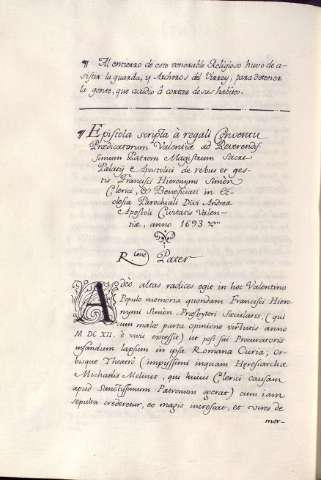 ¶ Al entierro de este venerable Religioso huvo de a-
sistir la guarda, y Archeros del Virrey, para detener
la gente, que acudio à cortar de ses habito.
¶ Epistola scripta à regali Conventu
Predicatorum Valentiæ ad Reverendis
simum Patrem Magistrum Sacri
Palatij Apostolici de rebus et ges-
tis Francisci Hieronymi Simòn
Clerici, & Beneficiati in Ec-
clesia Parochyali Divi Andreæ
Apostoli Civitatis Valen-
tiæ, anno 1693
Pater
Adèo altas radices egit in hoc Valentino
Populo memoria quondam Francisci Hiero
nymi Simòn, Presbyteri Secularis, (qui
cum male parta opinione virtutis anno
MDCXII. è vivis excessit) ut post sui Procuratoris
infandum lapsum in ipsa Romana Curia, or-
bisque Theatro (impyssimi inquam Heresiarchæ
Michaelis Molinos, qui huius Clerici causam
apud Sanctissimum Patronum gerat) cum iam
sepulta crederetur, eo magis increscat, et vires de
mor-